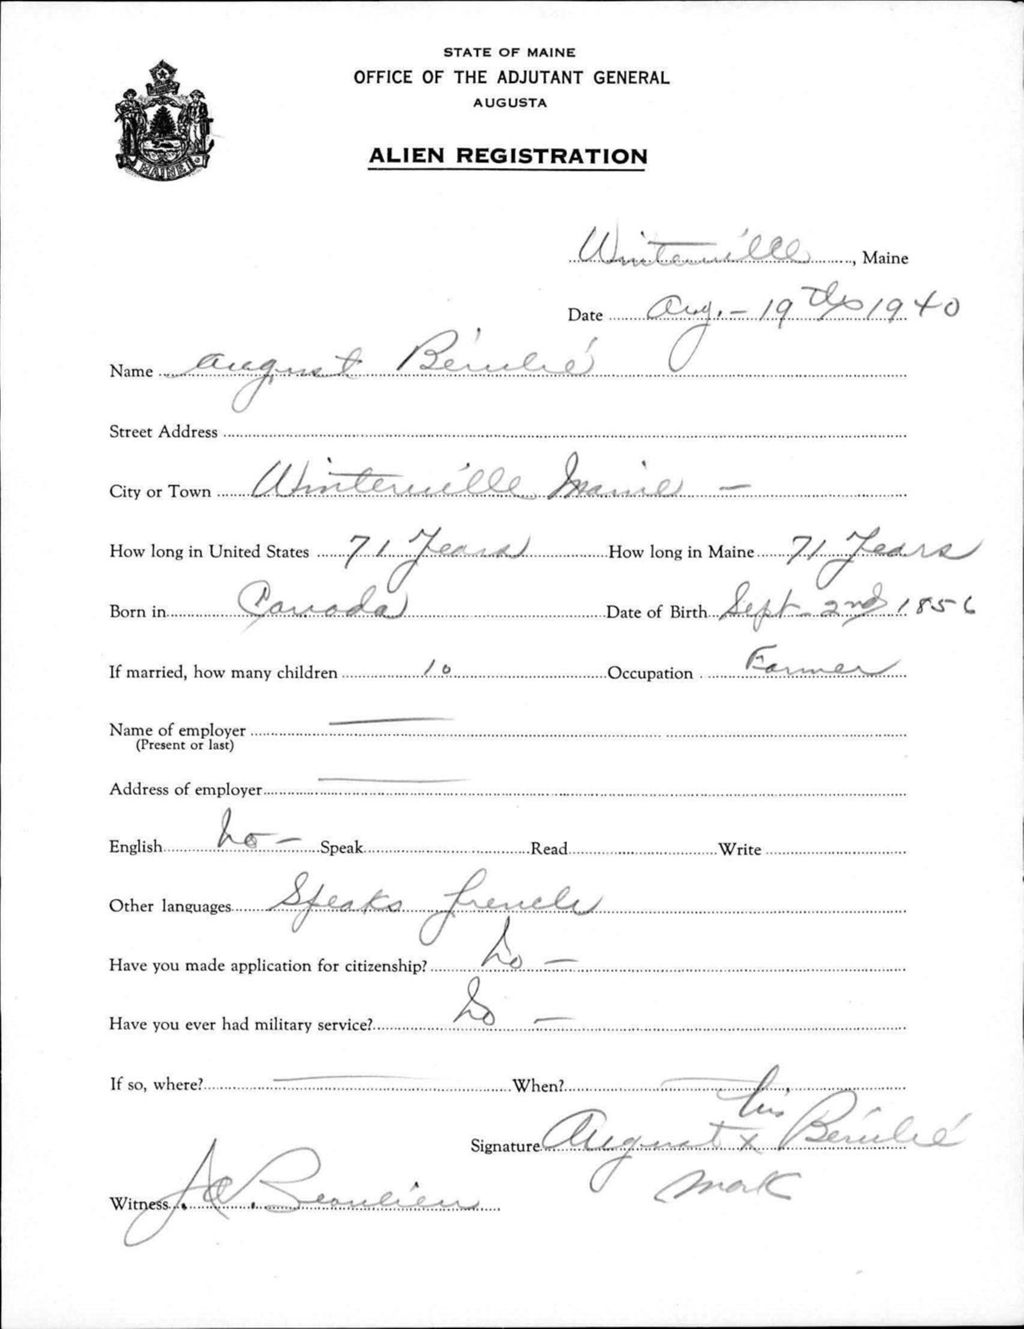 STATE OF MAINE
OFFICE OF THE ADJUTANT GENERAL
AUGUSTA
ALIEN REGISTRATION
MAINE
Winterville, Maine
Date Aug. - 19th 1940
Name August Bérubé
Street Address
City or Town Winterville Maine -
How long in United States 71 Years How long in Maine 71 Years
Born in Canada Date of Birth Sept 2nd 1856
If married, how many children 10 Occupation Farmer
Name of employer —
(Present or last)
Address of employer —
English No - Speak Read Write
Other languages Speaks french
Have you made application for citizenship? No -
Have you ever had military service? No -
If so, where? — When? —
his
Signature August x Bérubé
mark
Witness J. C. Beaulieu